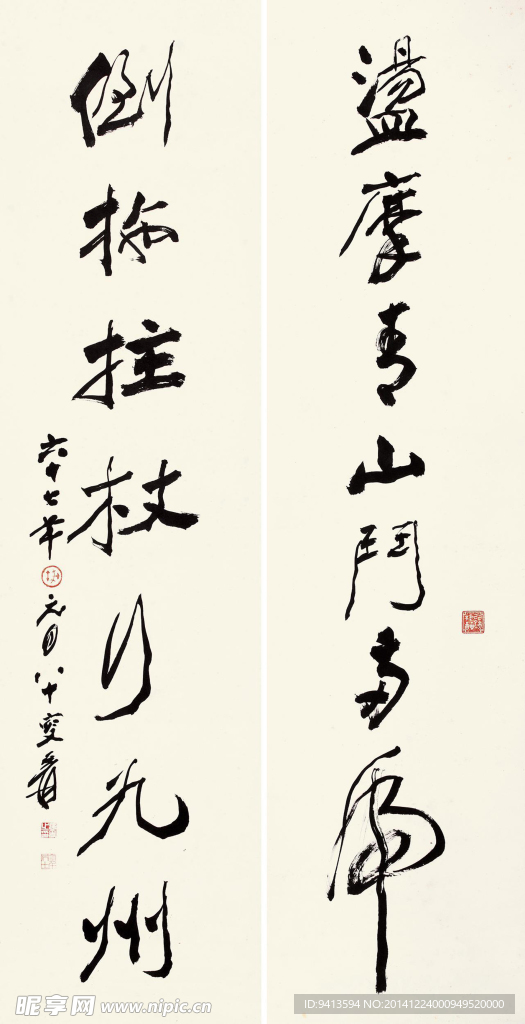 盪摩青山鬥兩虎
倒拖拄杖行九州
六十七年
元月八十叟爰
昵享网 www.nipic.cn
ID:9413594 NO:20141224000949520000